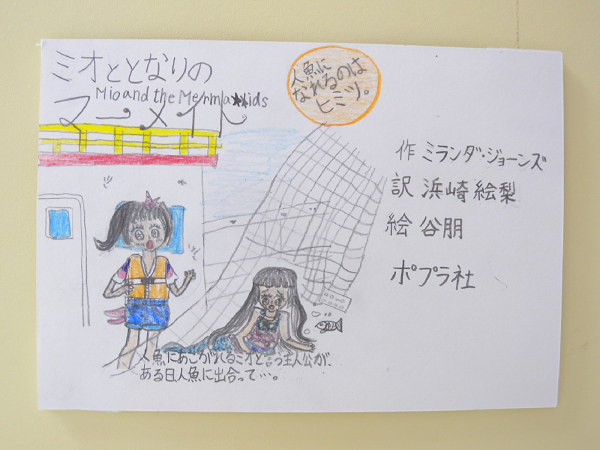 ミオととなりの
Mio and the Mermaids
マーメイド
人魚に
なれるのは
ヒミツ。
作 ミランダ・ジョーンズ
訳 浜崎絵梨
絵 谷朋
ポプラ社
人魚にあこがれるミオと言う主人公が、
ある日人魚に出合って…。